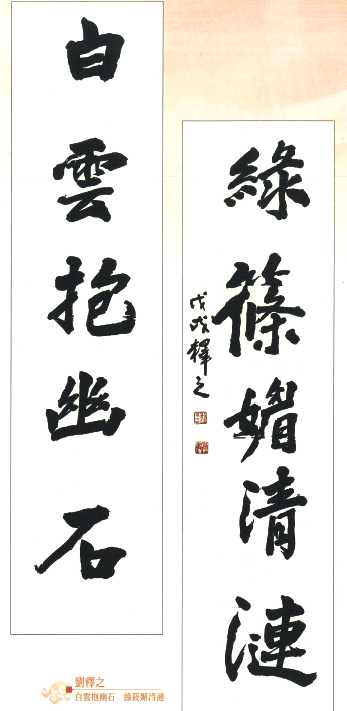 白雲抱幽石
綠篠媚清漣
戊戌釋之
劉釋之
白雲抱幽石 綠筱媚清漣